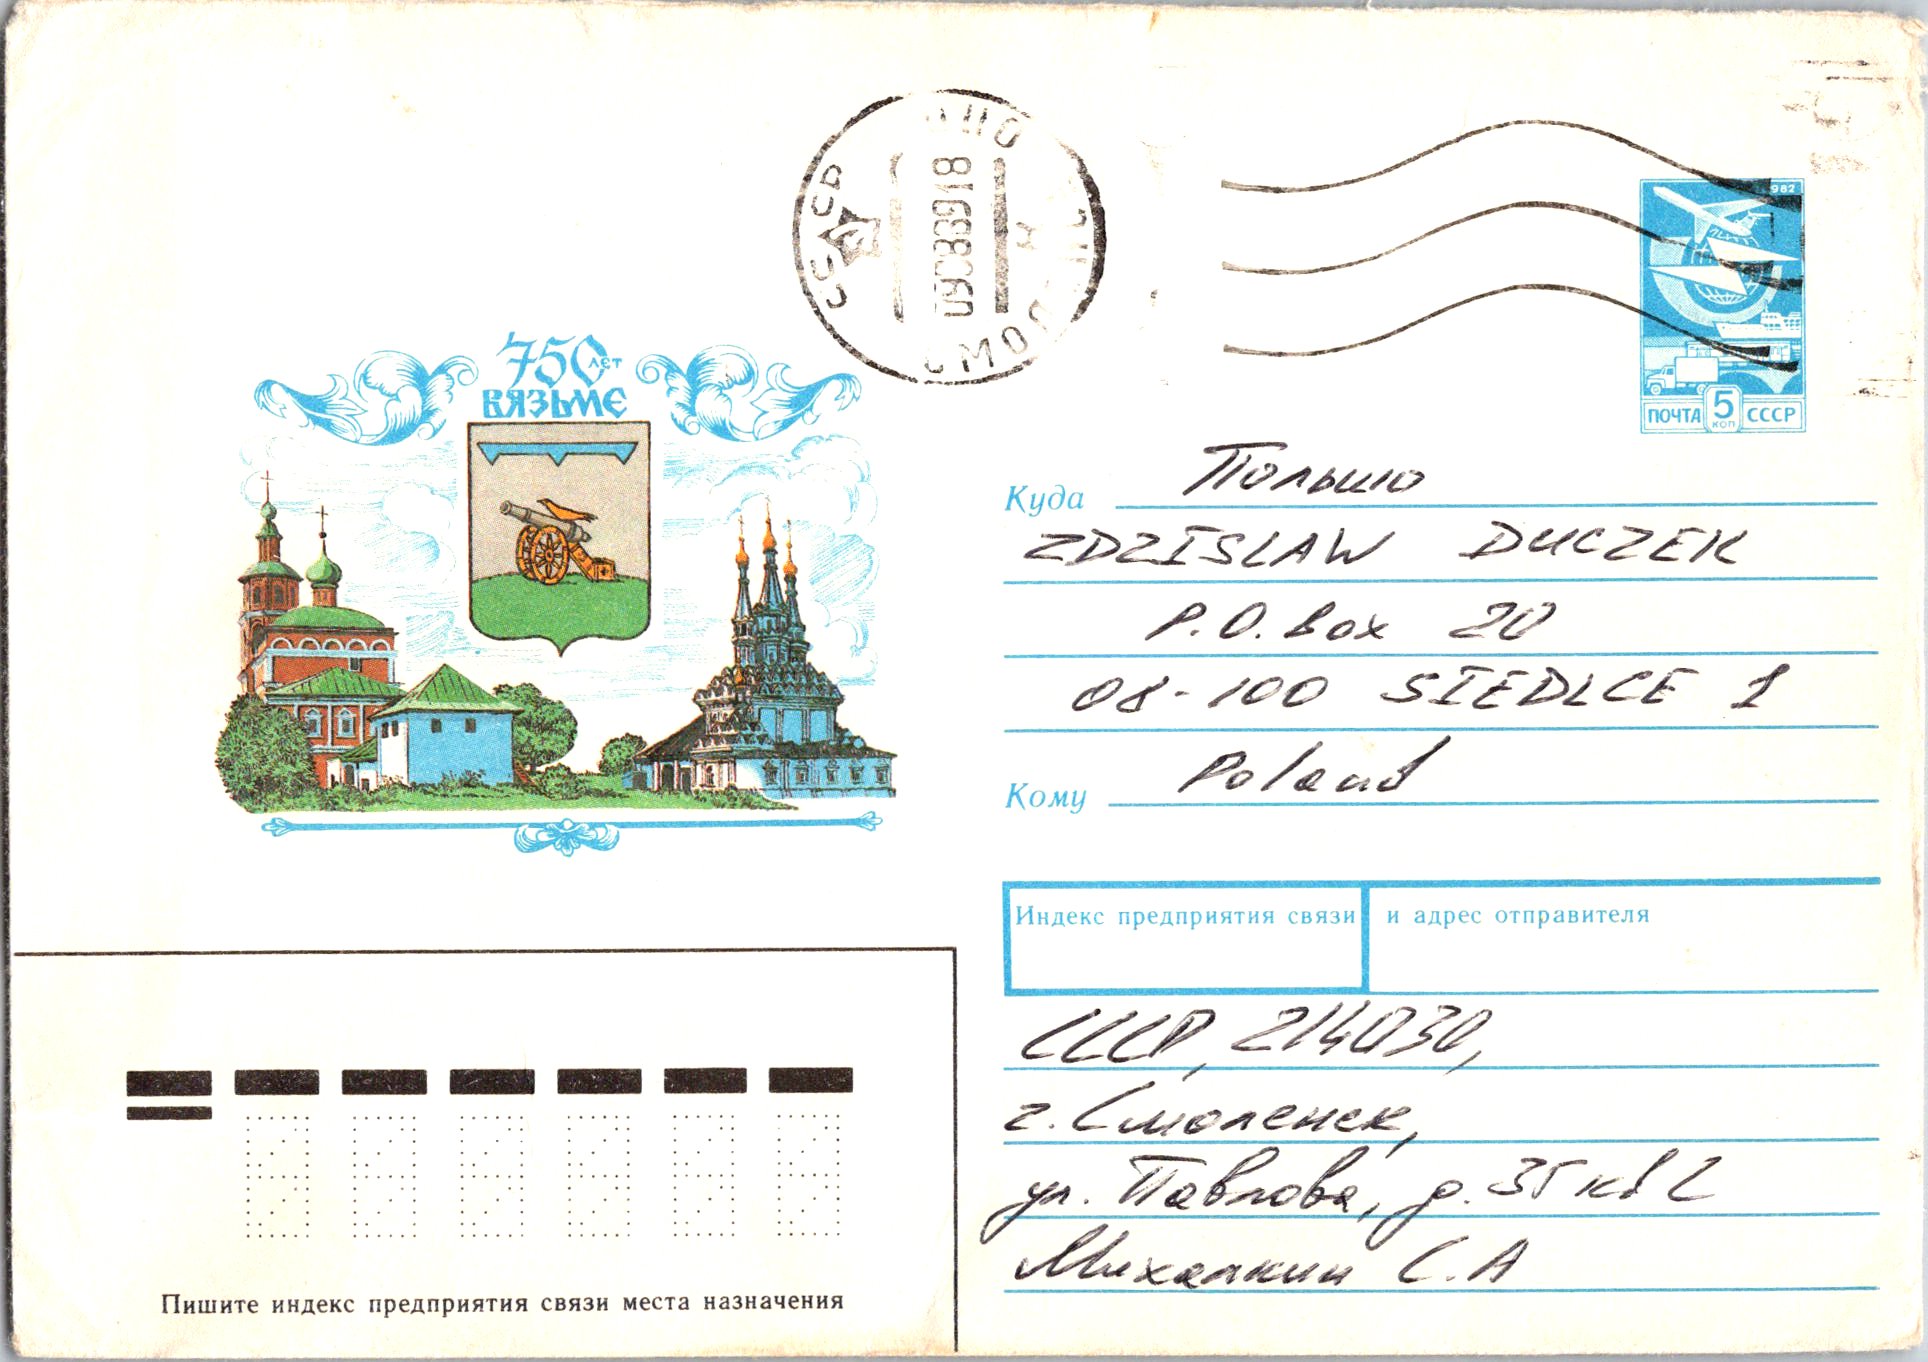 СССР
СМОЛ
750 лет
ВЯЗЬМЕ
1982
ПОЧТА 5 коп СССР
Куда Польша
ZDZISLAW DUCZEK
P.O. Box 20
08-100 SIEDLCE 1
Кому Poland
Индекс предприятия связи и адрес отправителя
СССР, 214030,
г. Смоленск,
ул. Павлова, д. 35 кв 2
Михалкин С.А
Пишите индекс предприятия связи места назначения